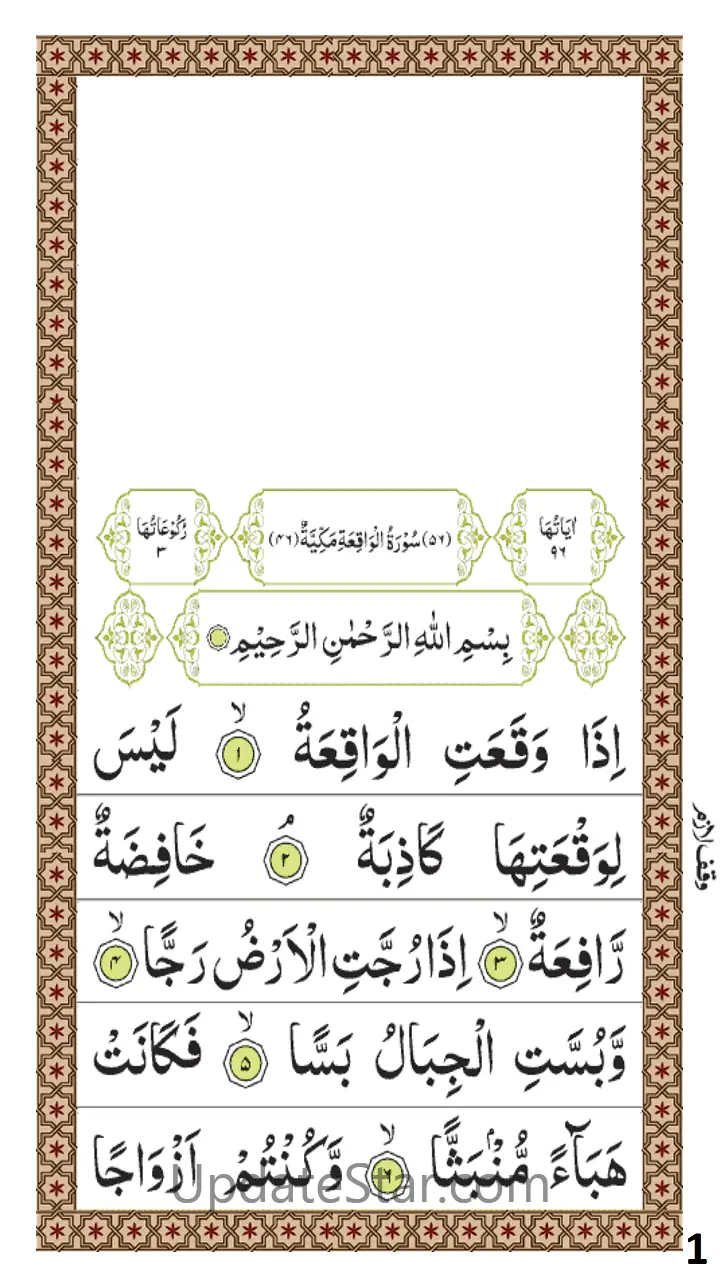 اٰیَاتُهَا ۹۶
(۵۶) سُوْرَةُ الْوَاقِعَةِ مَكِّیَّةٌ (۴۶)
رُكُوْعَاتُهَا ۳
بِسْمِ اللهِ الرَّحْمٰنِ الرَّحِیْمِ
اِذَا وَقَعَتِ الْوَاقِعَةُ ۙ ۱ لَیْسَ
لِوَقْعَتِهَا كَاذِبَةٌ ۘ ۲ خَافِضَةٌ
وقف لازم
رَّافِعَةٌ ۙ ۳ اِذَا رُجَّتِ الْاَرْضُ رَجًّا ۙ ۴
وَّبُسَّتِ الْجِبَالُ بَسًّا ۙ ۵ فَكَانَتْ
هَبَآءً مُّنْۢبَثًّا ۙ ۶ وَّكُنْتُمْ اَزْوَاجًا
UpdateStar.com
1